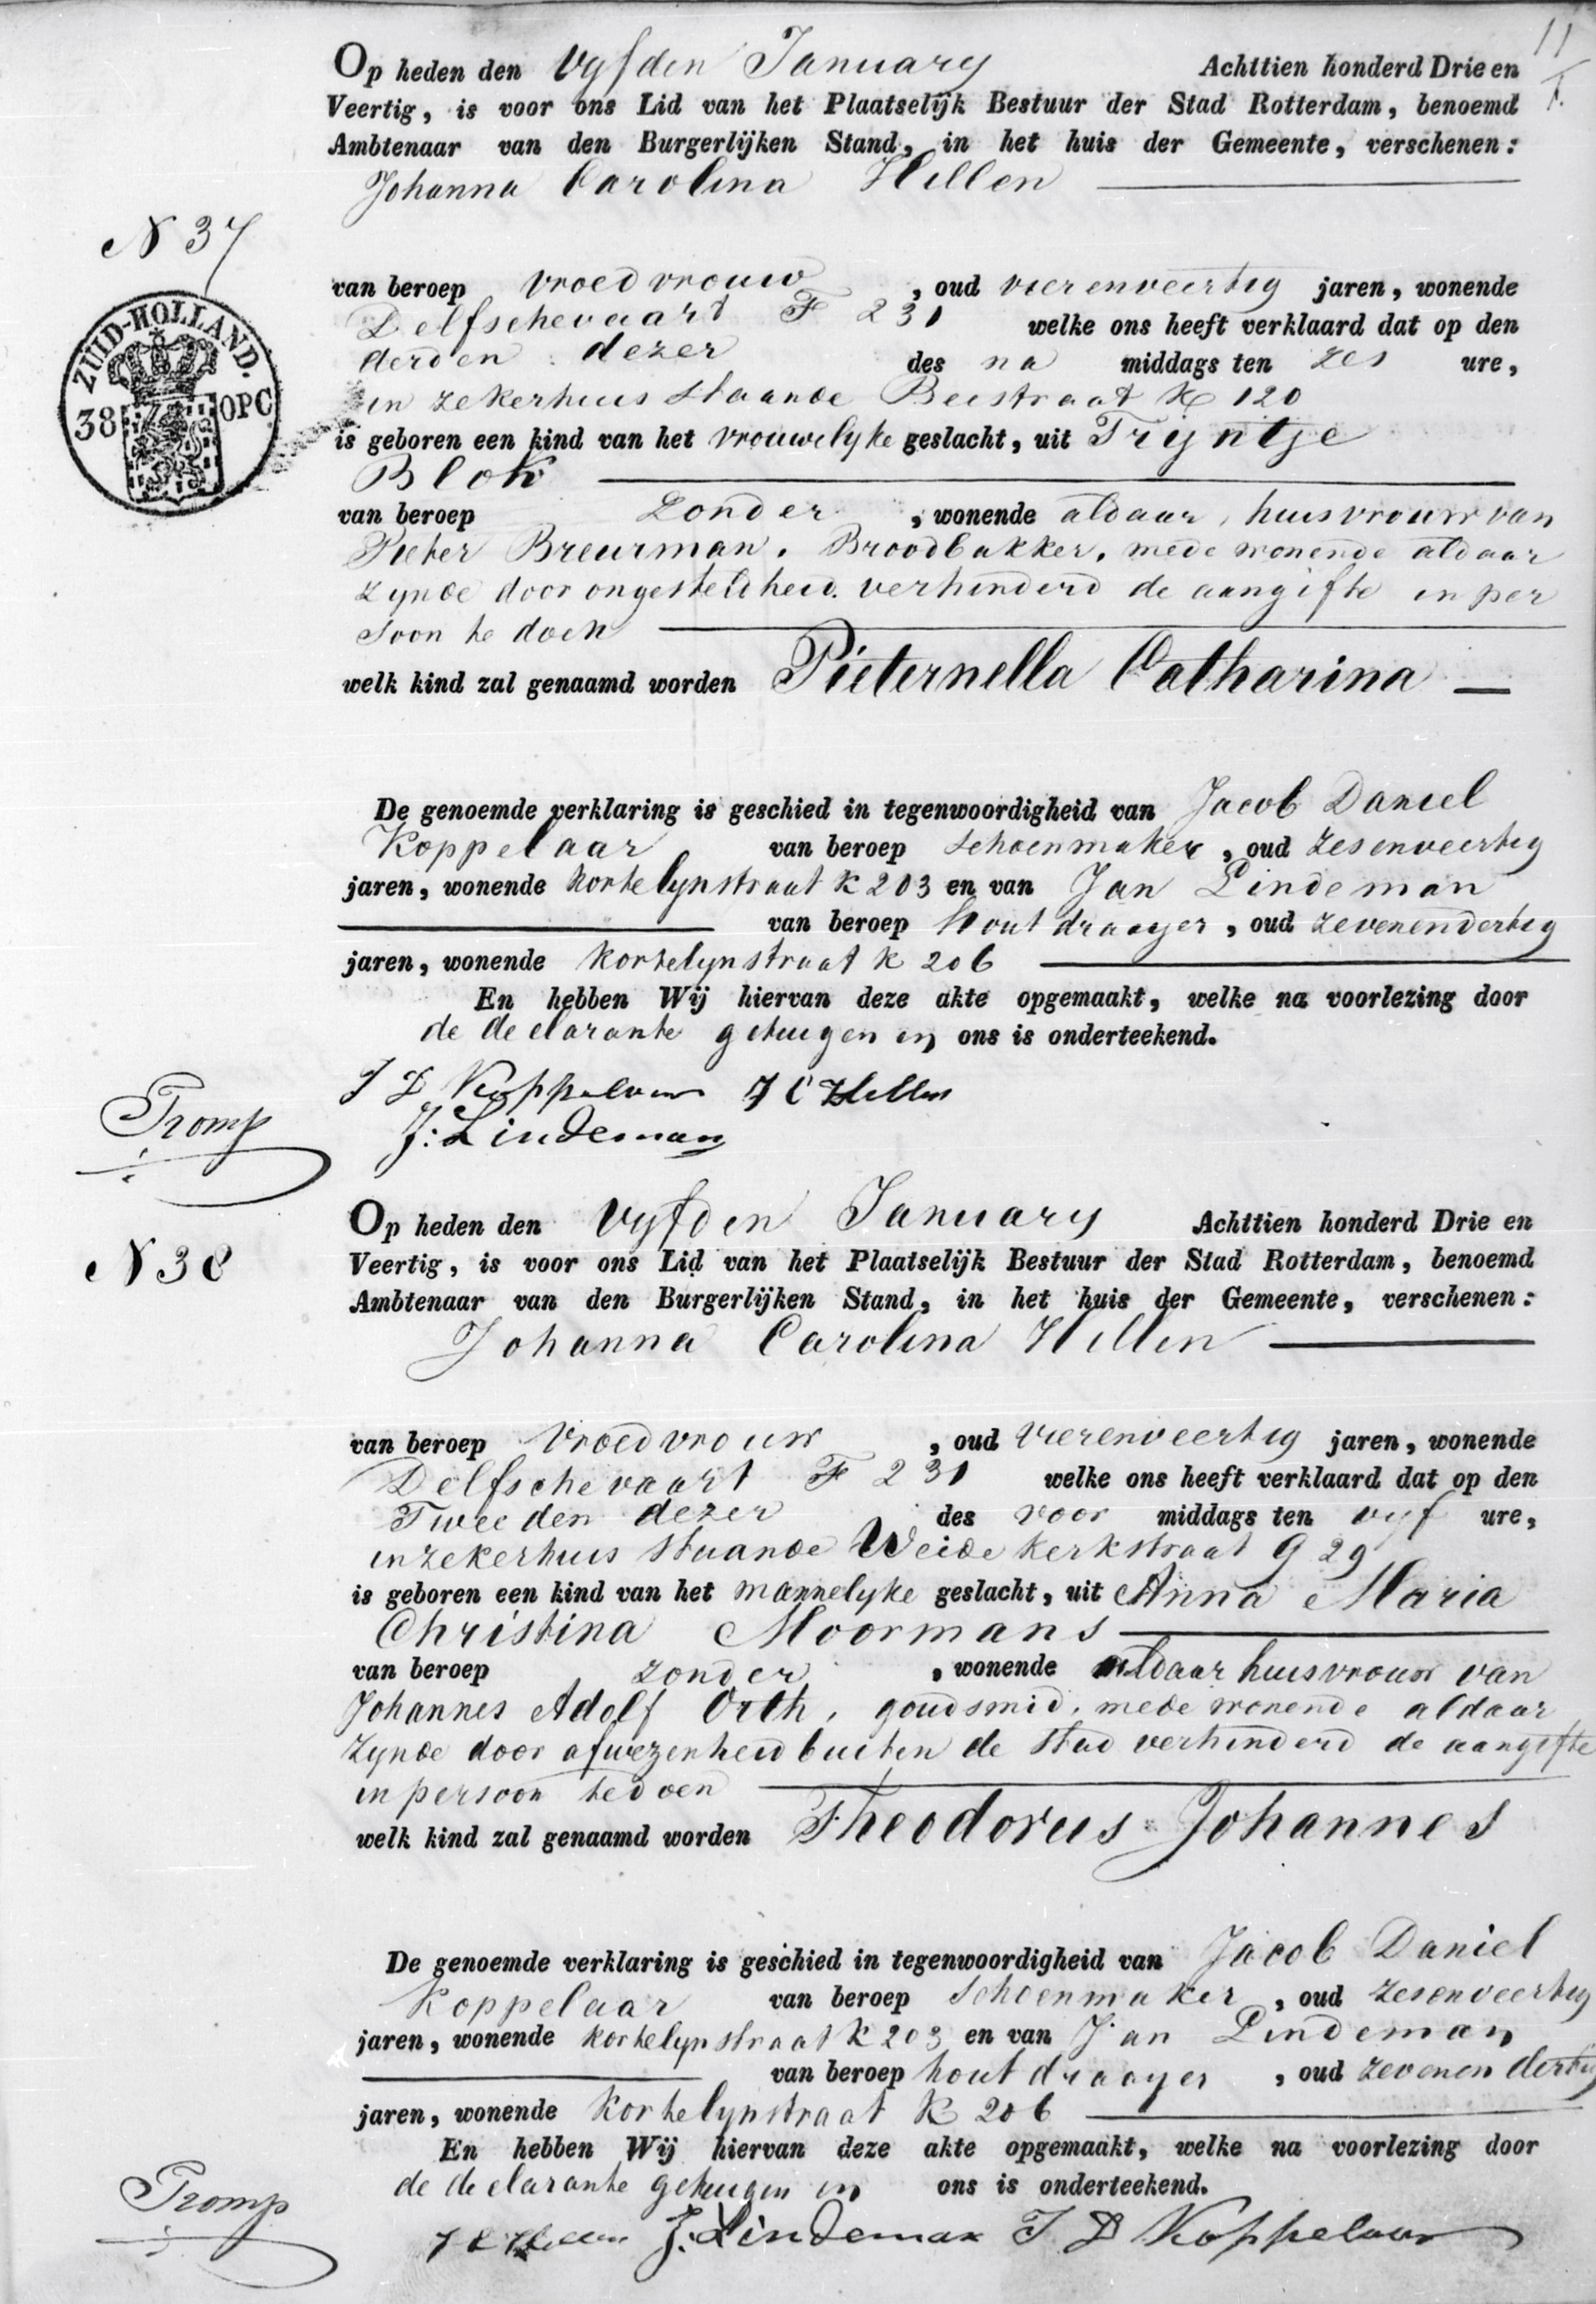 11
Op heden den vyfden January Achttien honderd Drie en
Veertig, is voor ons Lid van het Plaatselijk Bestuur der Stad Rotterdam, benoemd
Ambtenaar van den Burgerlijken Stand, in het huis der Gemeente, verschenen:
Johanna Carolina Hillen
N 37
van beroep vroedvrouw, oud vierenveertig jaren, wonende
Delfschevaart F 231 welke ons heeft verklaard dat op den
derden dezer des na middags ten zes ure,
in zekerhuis staande Beistraat K 120
ZUID-HOLLAND.
38 OPC
is geboren een kind van het vrouwelyke geslacht, uit Tryntje
Blok
van beroep zonder, wonende aldaar, huisvrouw van
Pieter Breurman, Broodbakker, mede wonende aldaar
zynde door ongesteldheid verhinderd de aangifte in per
soon te doen
welk kind zal genaamd worden Pieternella Catharina
De genoemde verklaring is geschied in tegenwoordigheid van Jacob Daniel
Koppelaar van beroep schoenmaker, oud zesenveertig
jaren, wonende kortelynstraat K 203 en van Jan Lindeman
van beroep houtdraayer, oud zevenendertig
jaren, wonende kortelynstraat K 206
En hebben Wij hiervan deze akte opgemaakt, welke na voorlezing door
de declarante getuigen en ons is onderteekend.
J D Koppelaar J C Hillen
Tromp
J: Lindeman
Op heden den vyfden January Achttien honderd Drie en
N 38
Veertig, is voor ons Lid van het Plaatselijk Bestuur der Stad Rotterdam, benoemd
Ambtenaar van den Burgerlijken Stand, in het huis der Gemeente, verschenen:
Johanna Carolina Hillen
van beroep vroedvrouw, oud vierenveertig jaren, wonende
Delfschevaart F 231 welke ons heeft verklaard dat op den
Tweeden dezer des voor middags ten vyf ure,
in zekerhuis staande Weide kerkstraat G 29
is geboren een kind van het mannelyke geslacht, uit Anna Maria
Christina Moormans
van beroep zonder, wonende aldaar huisvrouw van
Johannes Adolf Orth, goudsmid, mede wonende aldaar
zynde door afwezenheid buiten de stad verhinderd de aangifte
in persoon te doen
welk kind zal genaamd worden Theodorus Johannes
De genoemde verklaring is geschied in tegenwoordigheid van Jacob Daniel
Koppelaar van beroep schoenmaker, oud zesenveertig
jaren, wonende kortelynstraat K 203 en van Jan Lindeman
van beroep houtdraayer, oud zevenendertig
jaren, wonende kortelynstraat K 206
En hebben Wij hiervan deze akte opgemaakt, welke na voorlezing door
de declarante getuigen en ons is onderteekend.
Tromp
J C Hillen J: Lindeman J D Koppelaar